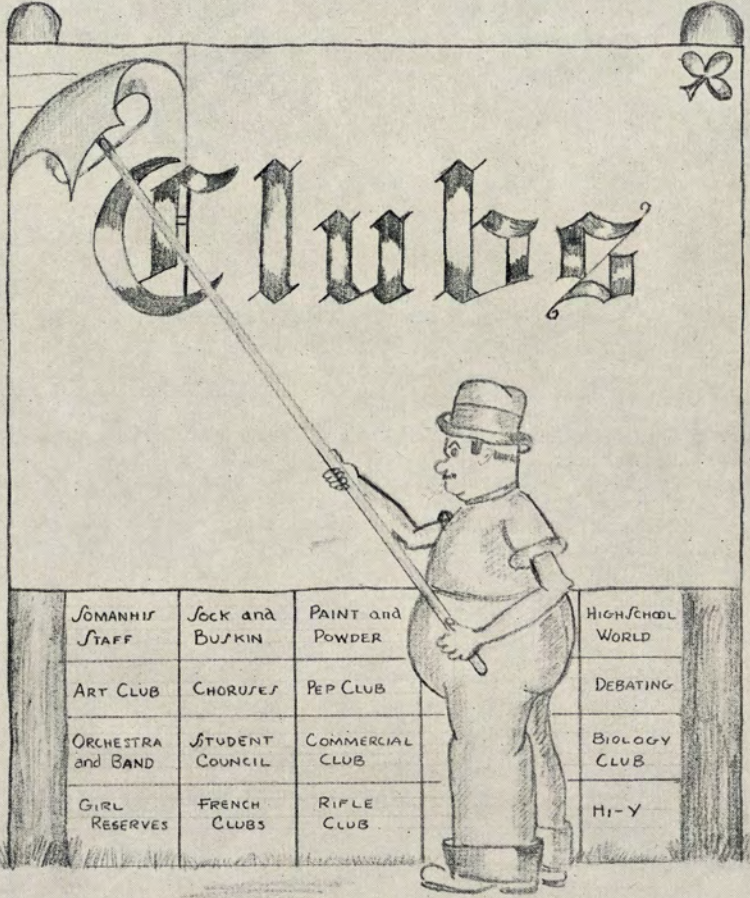 Clubs
SOMANHIS
STAFF
Sock and
BUSKIN
PAINT and
POWDER
HIGH SCHOOL
WORLD
ART CLUB
CHORUSES
PEP CLUB
DEBATING
ORCHESTRA
and BAND
STUDENT
COUNCIL
COMMERCIAL
CLUB
BIOLOGY
CLUB
GIRL
RESERVES
FRENCH
CLUBS
RIFLE
CLUB
HI-Y